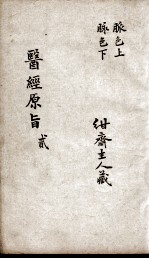 脈色上
脈色下
紺齋主人藏
醫經原旨
貳